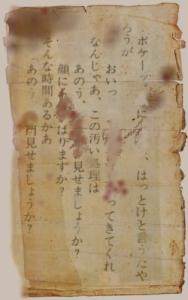 ポケーッ はっとけと言うたや
ろうが
おいっ ってきてくれ
なんじゃあ、この汚い 理は
あのう、 見せましょうか?
顔に はりますか?
そんな時間あるかあ
あのう 見せましょうか?